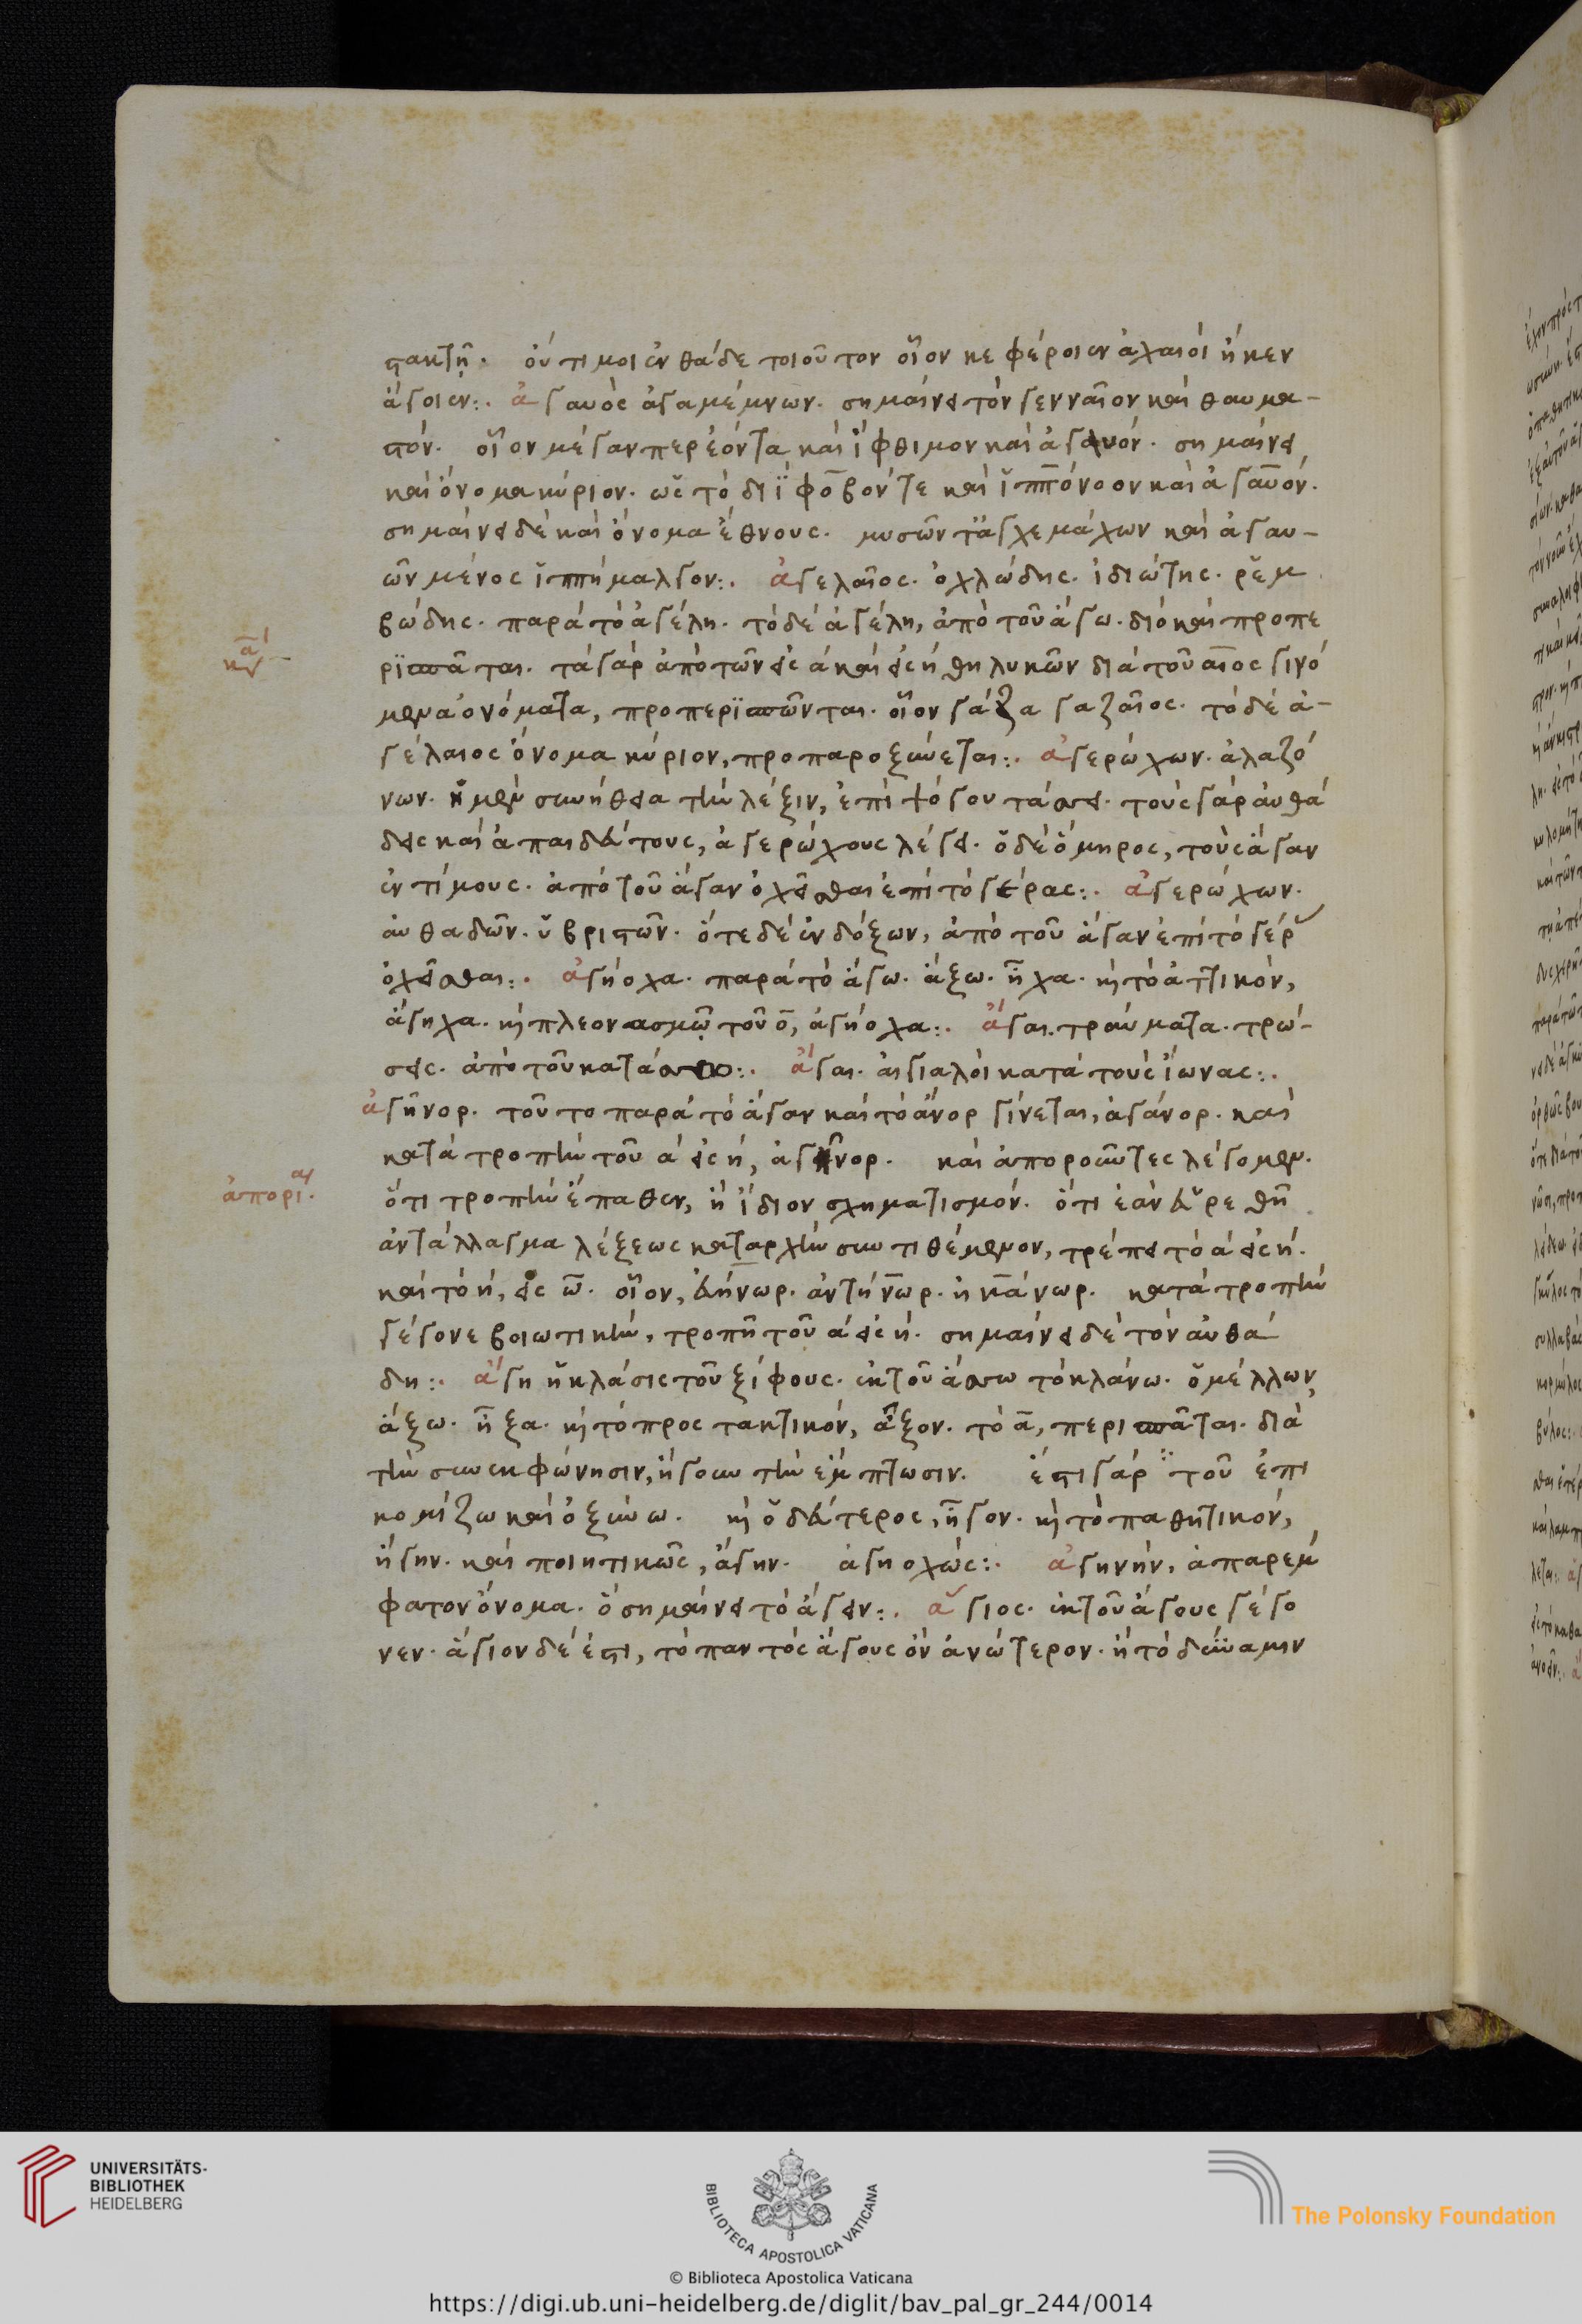 στακτῆ. οὔ τι μοι ἐνθάδε τοιοῦτον οἷον κε φέροιεν ἀχαιοὶ ἤ κεν
ἄγοιεν:. ἀγαυὸς ἀγαμέμνων. σημαίνει τὸν γενναῖον καὶ θαυμα-
στόν. οἷον μέγαν περ ἐόντα καὶ ἴφθιμον καὶ ἀγαυόν. σημαίνει
καὶ ὄνομα κύριον. ὡς τὸ δηΐφοβόν τε καὶ ἱππόνοον καὶ ἀγαυόν.
σημαίνει δὲ καὶ ὄνομα ἔθνους. μυσῶν τ' ἀγχεμάχων καὶ ἀγαυ-
ῶν μένος ἱππημαλγον:. ἀγελαῖος. ὀχλώδης. ἰδιώτης. ῥεμ
βώδης. παρὰ τὸ ἀγέλη. τὸ δὲ ἀγέλη, ἀπὸ τοῦ ἄγω. διὸ καὶ προπε
ρϊσπᾶται. τὰ γὰρ ἀπὸ τῶν εἰς ά καὶ εἰς ή θηλυκῶν διὰ τοῦ αῖος γινό
μενα ὀνόματα, προπερϊσπῶνται. οἷον γάζα γαζαῖος. τὸ δὲ ἀ-
γέλαιος ὄνομα κύριον, προπαροξύνεται:. ἀγερώχων. ἀλαζό
νων. ἡ μὲν συνήθεια τὴν λέξιν, ἐπὶ ψόγου τάσσει. τοὺς γὰρ αὐθά
δεις καὶ ἀπαιδεύτους, ἀγερώχους λέγει. ὁ δὲ ὅμηρος, τοὺς ἄγαν
ἐντίμους. ἀπὸ τοῦ ἄγαν ὀχεῖσθαι ἐπὶ τὸ γέρας:. ἀγερώχων.
αὐθαδῶν. ὑβριστῶν. ὁτὲ δὲ ἐνδόξων, ἀπὸ τοῦ ἄγαν ἐπὶ τὸ γέρας
ὀχεῖσθαι:. ἀγήοχα. παρὰ τὸ ἄγω. ἄξω. ἦχα. καὶ τὸ ἀττικόν,
ἄγηχα. καὶ πλεονασμῷ τοῦ ο, ἀγήοχα:. ἀγαι. τραύματα. τρώ-
σεις. ἀπὸ τοῦ κατάσσω:. ἀγαι. αἰγιαλοὶ κατὰ τοὺς ἴωνας:.
ἀγῆνορ. τοῦτο παρὰ τὸ ἄγαν καὶ τὸ ἄνορ γίνεται, ἀγάνορ. καὶ
κατὰ τροπὴν τοῦ ά εἰς ή, ἀγῆνορ. καὶ ἀποροῦντες λέγομεν.
ὅτι τροπὴν ἔπαθεν, ἢ ἴδιον σχηματισμόν. ὅτι ἐὰν εὑρεθῇ
ἀντάλλαγμα λέξεως καταρχὴν συντιθέμενον, τρέπει τὸ ά εἰς ή.
καὶ τὸ ή, εἰς ω. οἷον, εὐήνωρ. ἀντήνωρ. ἢ νικάνωρ. κατὰ τροπὴν
γέγονε βοιωτικὴν, τροπῇ τοῦ ά εἰς ή. σημαίνει δὲ τὸν αὐθά
δη:. ἄγη ἡ κλάσις τοῦ ξίφους. ἐκ τοῦ ἄσσω τὸ κλάνω. ὁ μέλλων
ἄξω. ἦξα. καὶ τὸ προστακτικόν, ἆξον. τὸ ᾶ, περισπᾶται. διὰ
τὴν συνεκφώνησιν, ἤγουν τὴν ἔμπτωσιν. ἔστι γὰρ τοῦ ἐπι
κομίζω καὶ ὀξύνω. καὶ ὁ δεύτερος, ἦγον. καὶ τὸ παθητικόν,
ἤγην. καὶ ποιητικῶς, ἄγην. ἀγηοχὼς:. ἀγηνήν, ἀπαρέμ
φατον ὄνομα. ὃ σημαίνει τὸ ἄγειν:. ἅγιος. ἐκ τοῦ ἄγους γέγο
νεν. ἅγιον δέ ἐστι, τὸ παντὸς ἄγους ὂν ἀνώτερον. ἢ τὸ δύναμιν
ἀπορίαι.
UNIVERSITÄTS-
BIBLIOTHEK
HEIDELBERG
BIBLIOTECA APOSTOLICA VATICANA
The Polonsky Foundation
© Biblioteca Apostolica Vaticana
https://digi.ub.uni-heidelberg.de/diglit/bav_pal_gr_244/0014